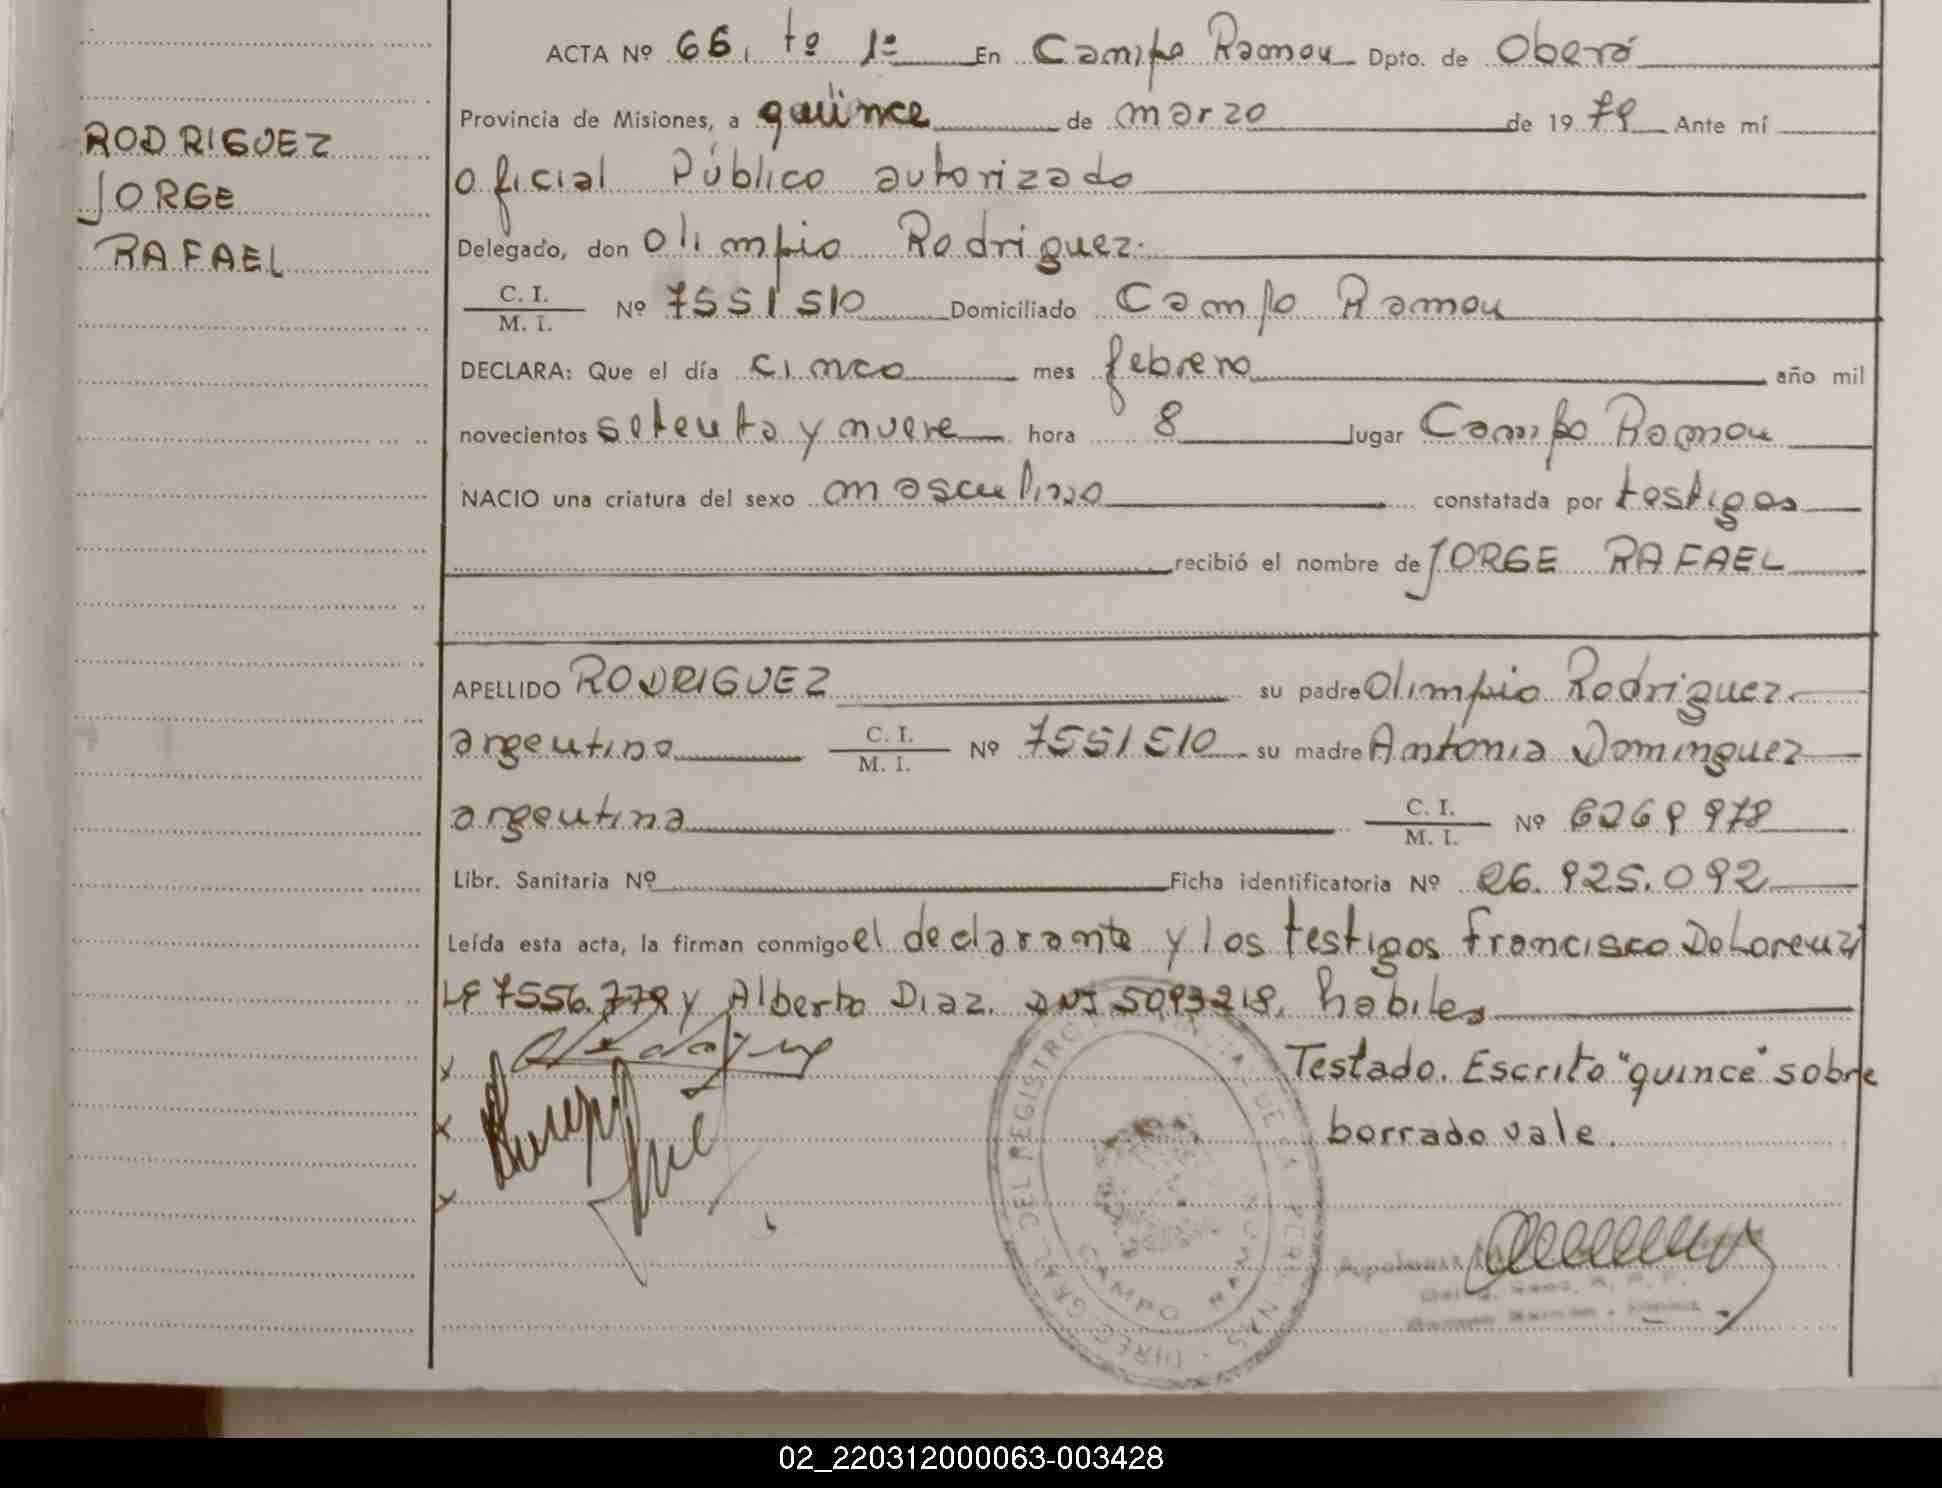 RODRIGUEZ
JORGE
RAFAEL
ACTA Nº 66, tº 1º En Campo Ramon Dpto. de Oberá
Provincia de Misiones, a quince de marzo de 1979 Ante mí
oficial Público autorizado
Delegado, don Olimpio Rodriguez
C. I.
M. I. Nº 7551510 Domiciliado Campo Ramon
DECLARA: Que el día cinco mes febrero año mil
novecientos setenta y nueve hora 8 lugar Campo Ramon
NACIO una criatura del sexo masculino constatada por testigos
recibió el nombre de JORGE RAFAEL
APELLIDO RODRIGUEZ su padre Olimpio Rodriguez
argentino C. I. M. I. Nº 7551510 su madre Antonia Dominguez
argentina C. I. M. I. Nº 6269978
Libr. Sanitaria Nº Ficha identificatoria Nº 26.925.092
Leída esta acta, la firman conmigo el declarante y los testigos Francisco DeLorenzi
LE 7556.779 y Alberto Diaz. DNI 5093218, habiles
Testado. Escrito "quince" sobre
borrado vale.
DIREC. GRAL. DEL REGISTRO
CAMPO RAMON
02_220312000063-003428